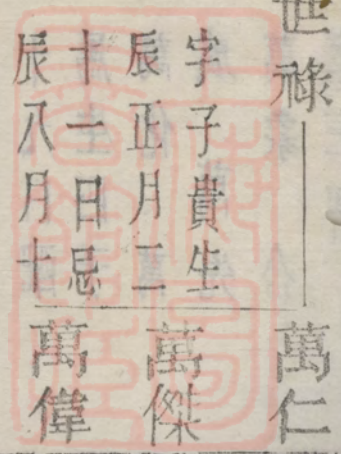 世祿
字子貴生
辰正月二
十一日忌
辰八月十
萬仁
萬傑
萬偉